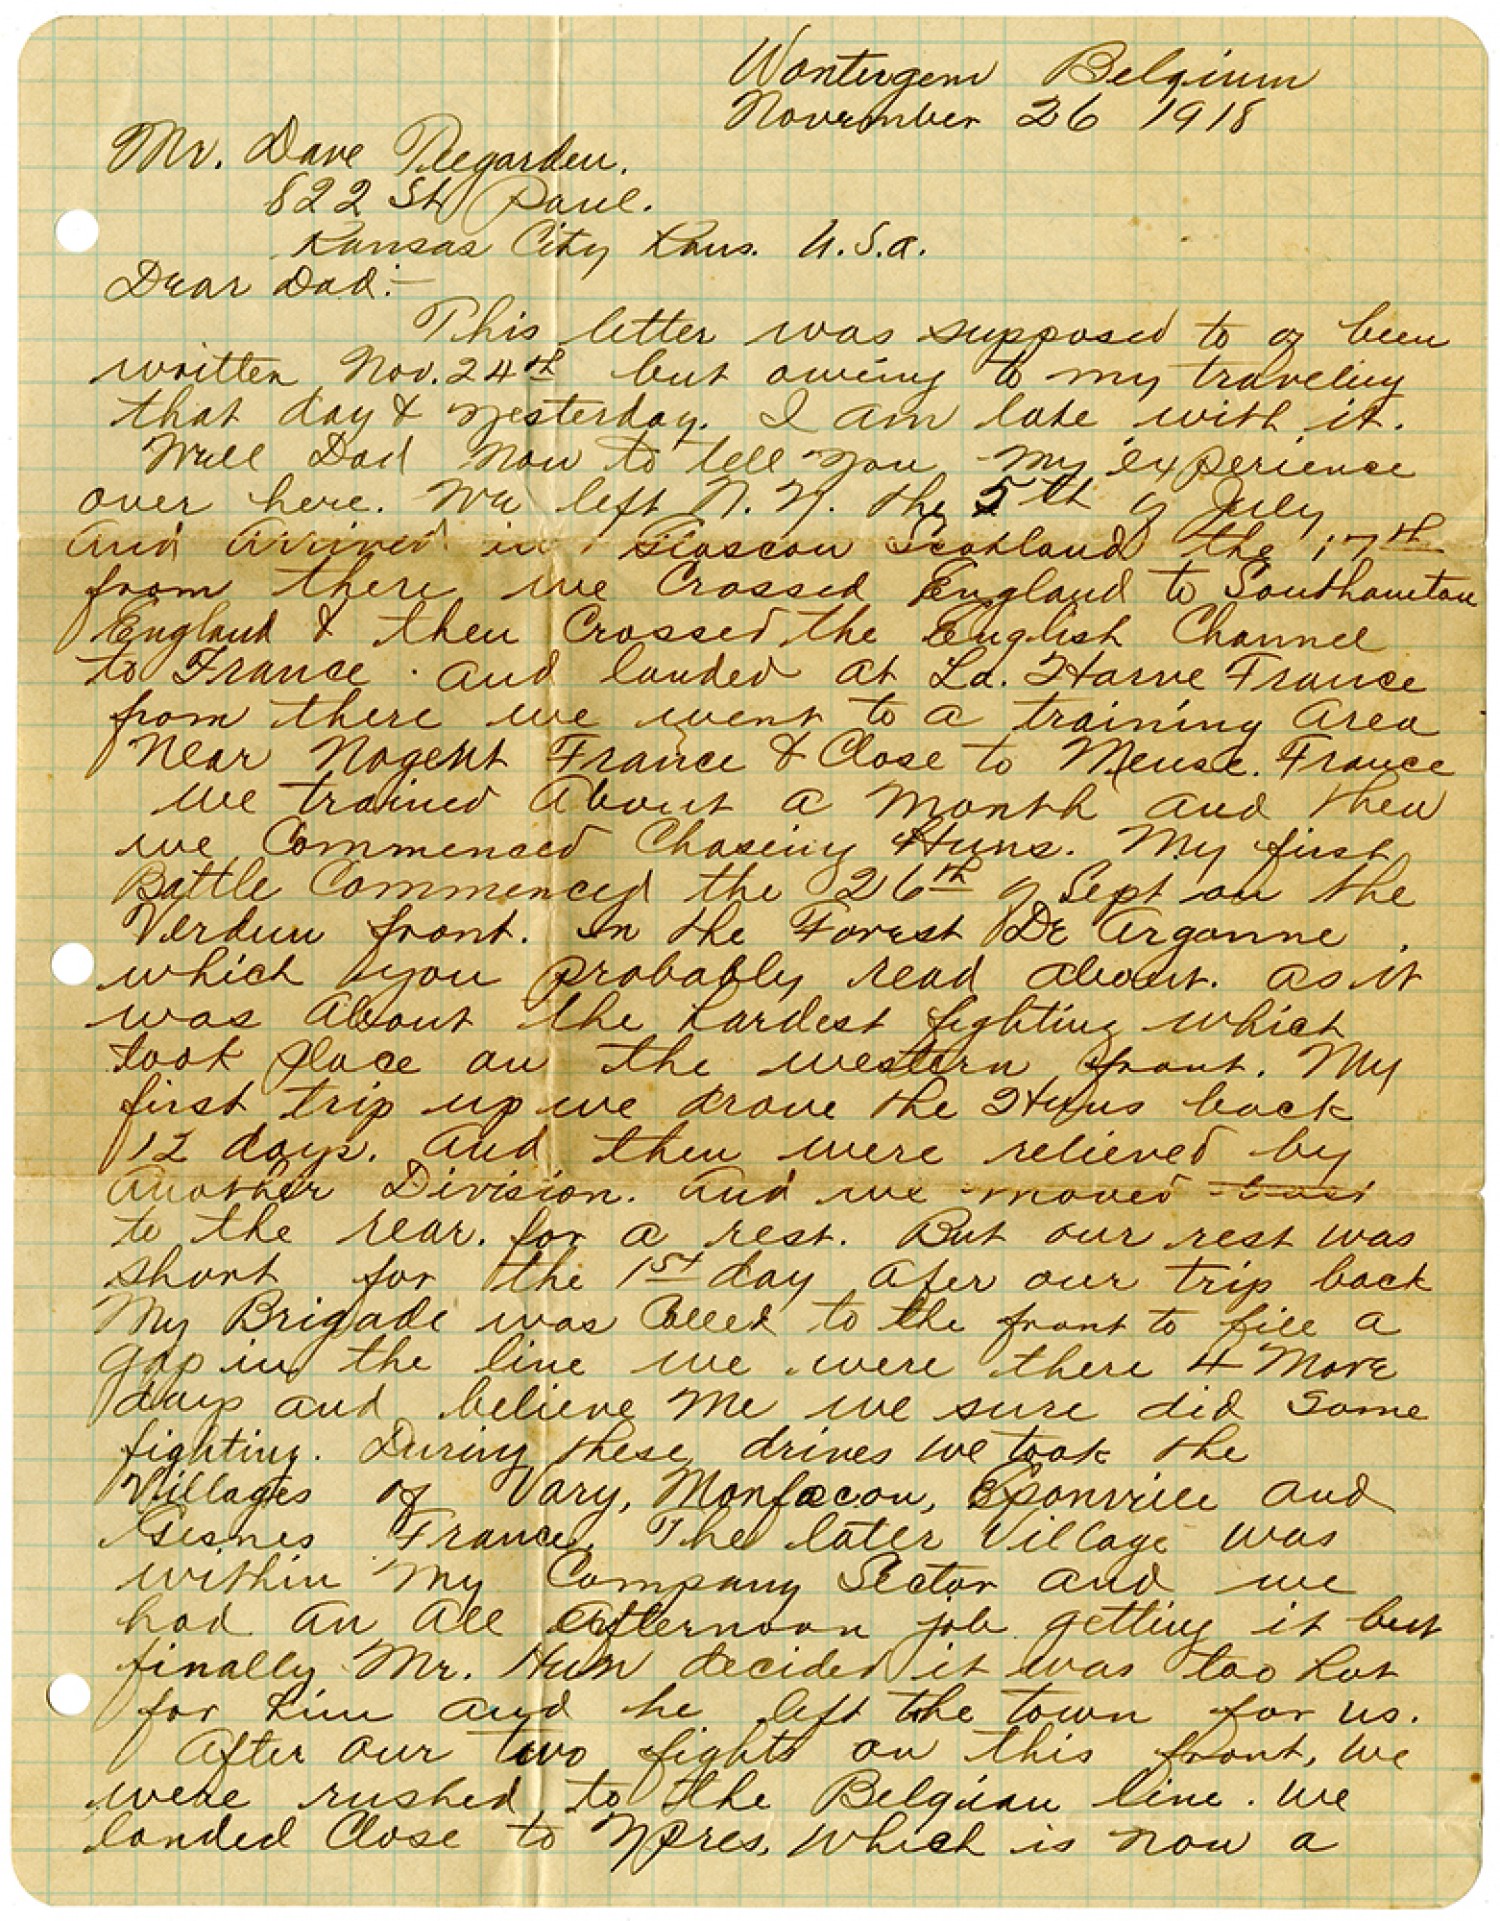 Wontergem Belgium
November 26 1918
Mr. Dave Teegarden.
822 St Paul.
Kansas City Kans. U.S.a.
Dear Dad:-
This letter was supposed to of been
written Nov. 24th but owing to my traveling
that day & yesterday. I am late with it.
Well Dad Now to tell you my experience
over here. We left N.Y. the 5th of July
and Arrived in Glascow Scotland the 17th
from there we Crossed England to Southamton
England & then Crossed the English Channel
to France. and landed at La. Harve France
from there we went to a training Area
Near Nogent France & Close to Meuse. France
we trained About a Month and then
we Commensed Chaseing Huns. My first
Battle Commenced the 26th of Sept on the
Verdun front. in the Forest De Argonne.
which you probably read about. as it
was About the hardest fighting which
took place on the western front. My
first trip up we drove the Huns back
12 days. and then were relieved by
Another Division. and we moved
to the rear. for a rest. But our rest was
short for the 1st day after our trip back
My Brigade was Called to the front to fill a
gap in the line we were there 4 More
days and believe Me we sure did Some
fighting. During these drives we took the
Villages of Vary, Monfacon, Eponville and
Gesnes France. The later Village was
within My Company Sector and we
had an all afternoon job getting it but
finally Mr. Hun decided it was too hot
for him and he left the town for us.
After our two fights on this front, we
were rushed to the Belgian line. We
landed Close to Ypres, which is now a